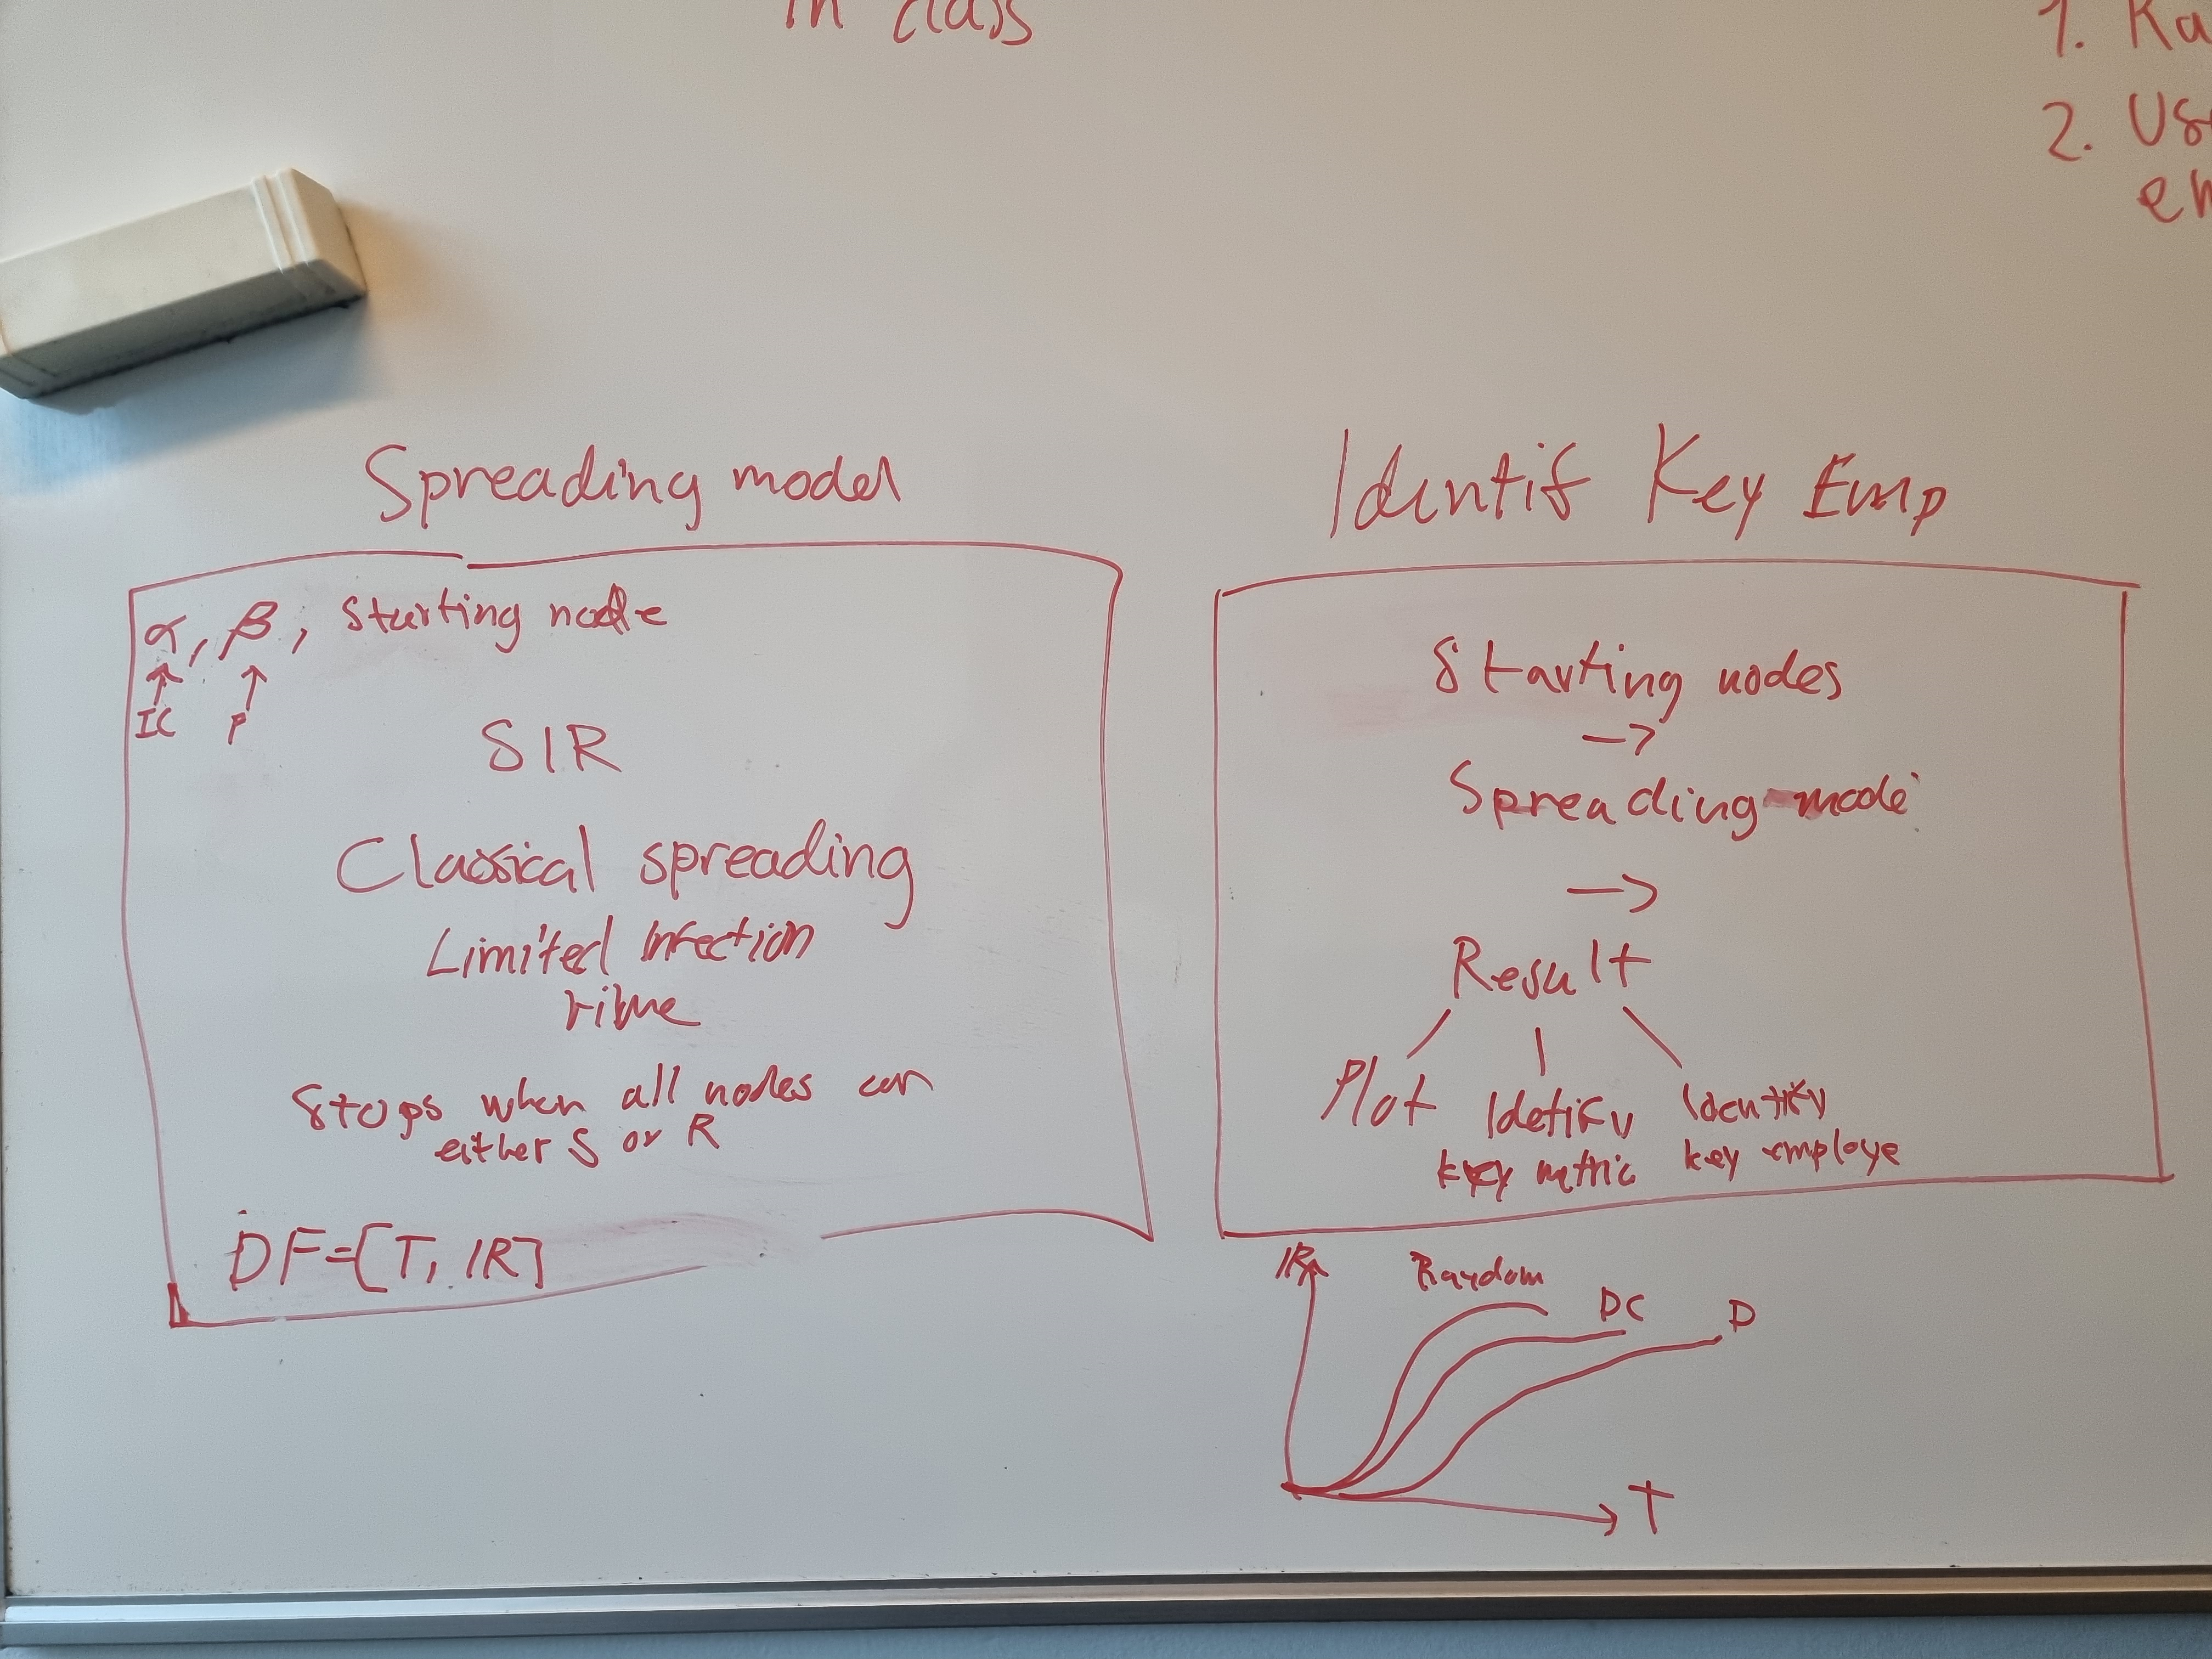 in class
1. Ka
2. Us
em
Spreading model
α, β, starting node
IC P
SIR
Classical spreading
Limited Infection
time
Stops when all nodes are
either S or R
DF=[T, IR]
Identif Key Emp
Starting nodes
->
Spreading mode
->
Result
Plot Idetify Identify
key metric key employe
IR Random
DC D
T